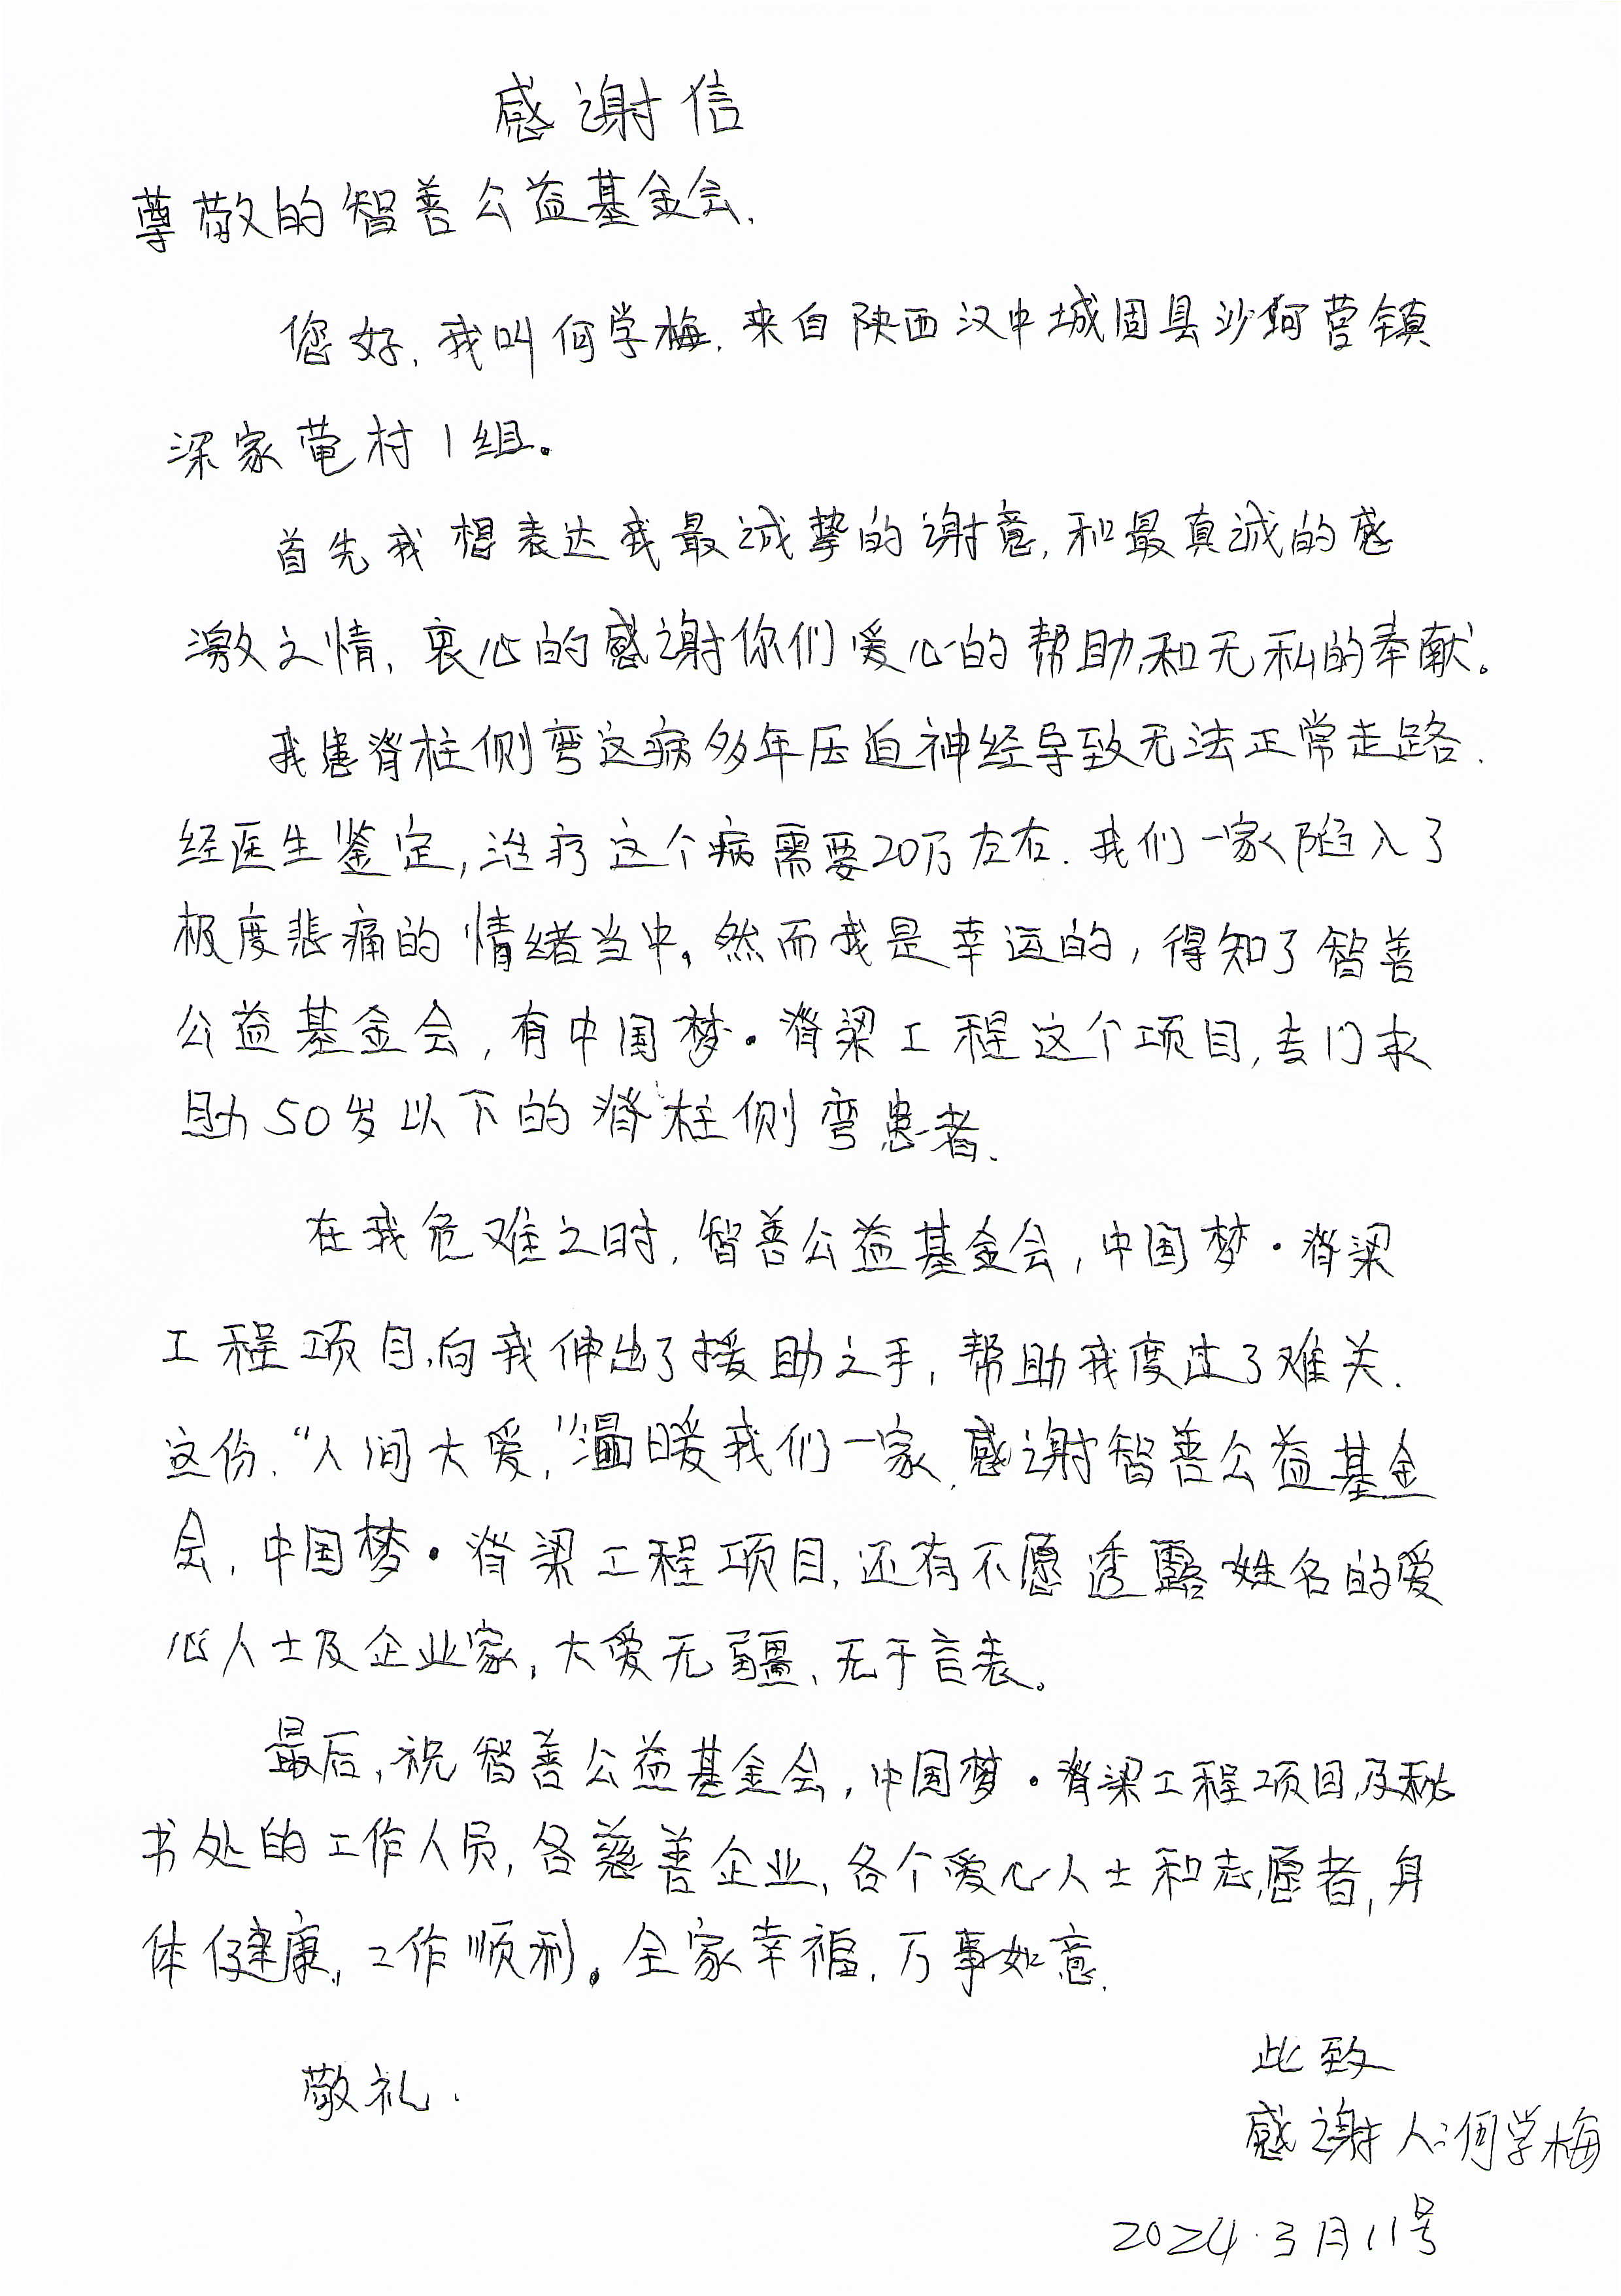 感谢信
尊敬的智善公益基金会.
您好,我叫何学梅.来自陕西汉中城固县沙河营镇
深家菴村1组。
首先我想表达我最诚挚的谢意,和最真诚的感
激之情,衷心的感谢你们爱心的帮助,和无私的奉献。
我患脊柱侧弯这病多年压迫神经导致无法正常走路.
经医生鉴定,治疗这个病需要20万左右.我们一家陷入了
极度悲痛的情绪当中。然而我是幸运的,得知了智善
公益基金会,有中国梦·脊梁工程这个项目,专门求
助50岁以下的脊柱侧弯患者.
在我危难之时,智善公益基金会,中国梦·脊梁
工程项目,向我伸出了援助之手,帮助我度过了难关.
这份.“人间大爱,”温暖我们一家.感谢智善公益基金
会,中国梦·脊梁工程项目,还有不愿透露姓名的爱
心人士及企业家,大爱无疆、无于言表。
最后,祝智善公益基金会,中国梦·脊梁工程项目,及秘
书处的工作人员,各慈善企业,各个爱心人士和志愿者,身
体健康,工作顺利。全家幸福.万事如意.
此致
敬礼.
感谢人:何学梅
2024.3月11号